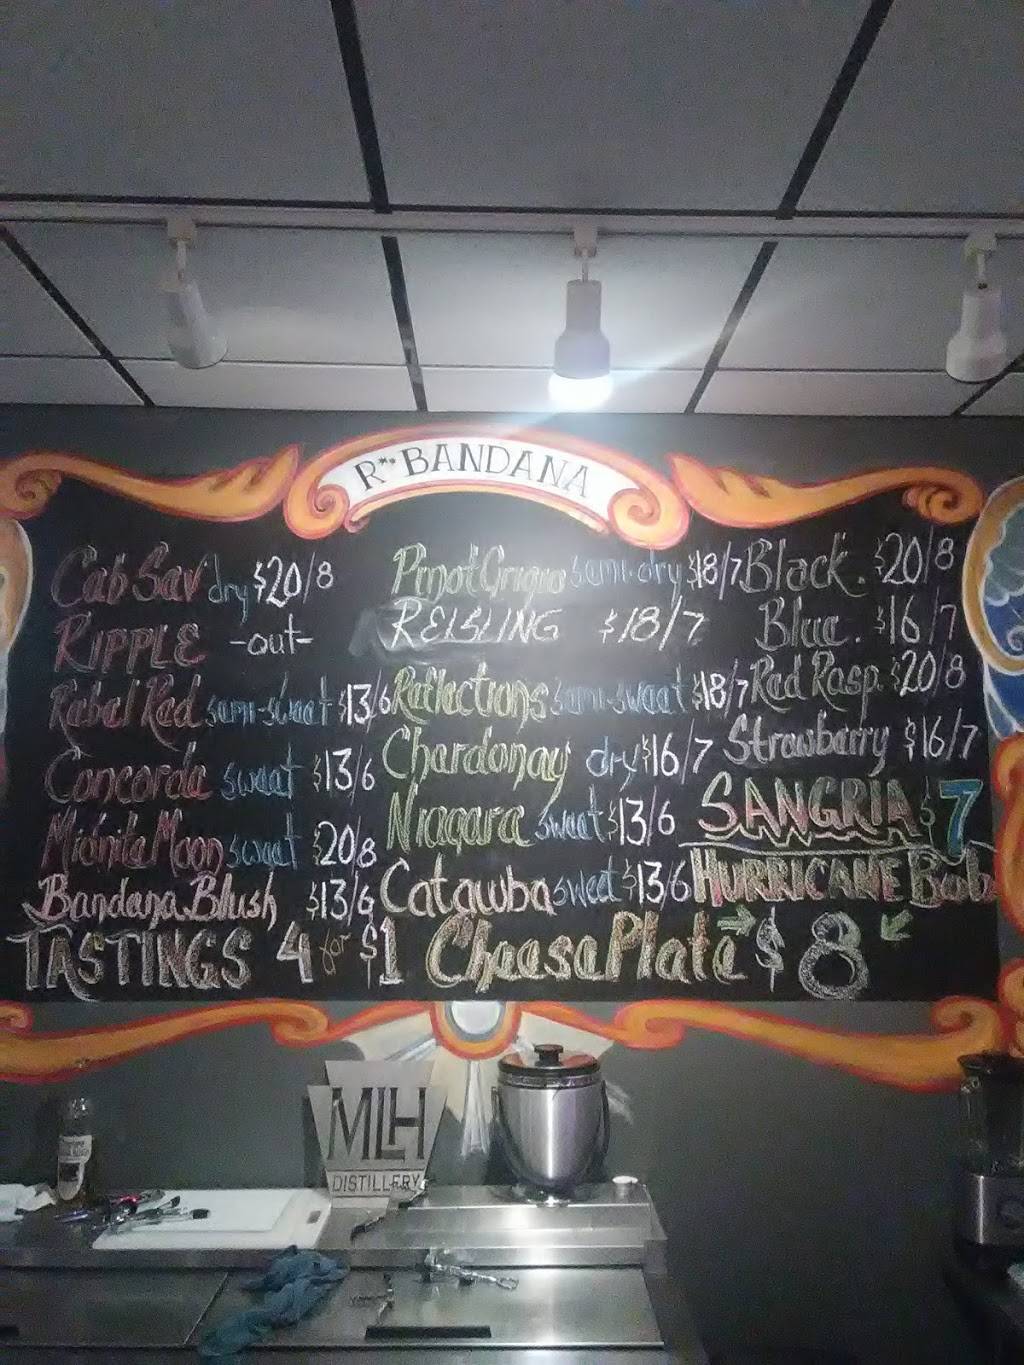 R** BANDANA
Cab Sav dry $20/8
RIPPLE -out-
Rebel Red semi-sweet $13/6
Concorde sweet $13/6
Midnite Moon sweet $20/8
Bandana Blush $13/6
Pinot Grigio semi-dry $18/7
REISLING $18/7
Reflections semi-sweet $18/7
Chardonay dry $16/7
Niagara sweet $13/6
Catawba sweet $13/6
Black. $20/8
Blue. $16/7
Red Rasp. $20/8
Strawberry $16/7
SANGRIA $7
HURRICANE Bob
TASTINGS 4 for $1 Cheese Plate $8
MLH
DISTILLERY